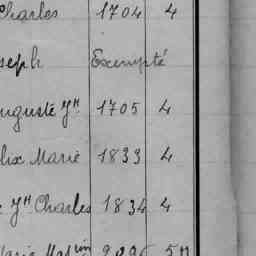 Charles 1704 4
seph Exempté
uguste Jh 1705 4
lix Marie 1833 4
Jh Charles 1834 4